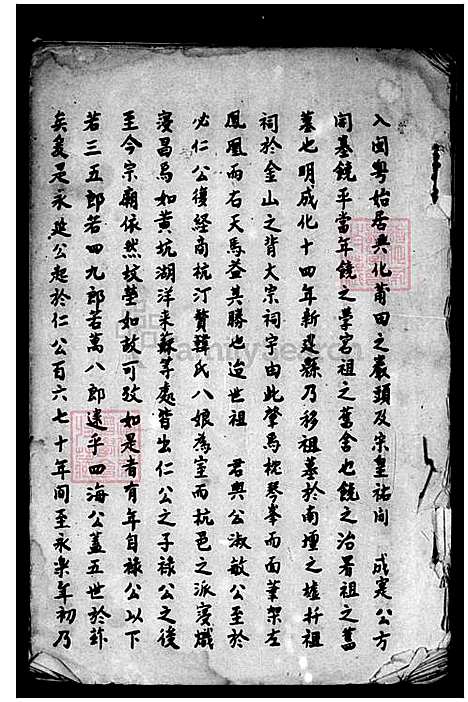 入閩粤始居興化莆田之嚴頭及宋皇祐間 成寔公方
開基饒平當年饒之學宮祖之舊舍也饒之治署祖之舊
墓也明成化十四年新建縣乃移祖墓於南壇之墟并祖
祠於金山之背大宗祠宇由此肇焉枕琴峯而面筆架左
鳳凰而右天馬蓋其勝也迨世祖 君與公淑敏公至於
必仁公復經商杭汀贅韓氏八娘為室而杭邑之派寖熾
寖昌焉如黃坑湖洋来蘇等處皆出仁公之子祿公之後
至今宗廟依然坟塋如故可攷如是者有年自祿公以下
若三五郎若四九郎若萬八郎遠乎四海公蓋五世於茲
矣爰是永延公起於仁公百六七十年間至永樂年初乃
FamilySearch